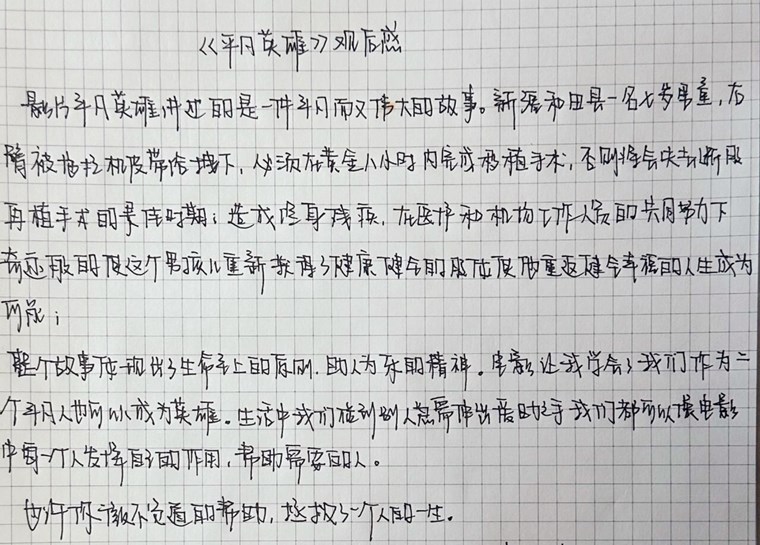 《平凡英雄》观后感
影片平凡英雄讲述的是一件平凡而又伟大的故事。新疆和田县一名七岁男童，右
臂被拖拉机皮带给拽下，必须在黄金八小时内完成移植手术，否则将会失去断肢
再植手术的最佳时期；造成终身残疾，在医护和机场工作人员的共同努力下
奇迹般的使这个男孩儿重新获得了健康健全的肢体使他重返健全幸福的人生成为
可能；
整个故事体现出了生命至上的原则，助人为乐的精神。电影让我学会了我们作为一
个平凡人也可以成为英雄。生活中我们碰到别人急需伸出援助之手我们都可以像电影
中每一个人发挥自己的作用，帮助需要的人。
也许你微不足道的帮助，拯救了一个人的一生。